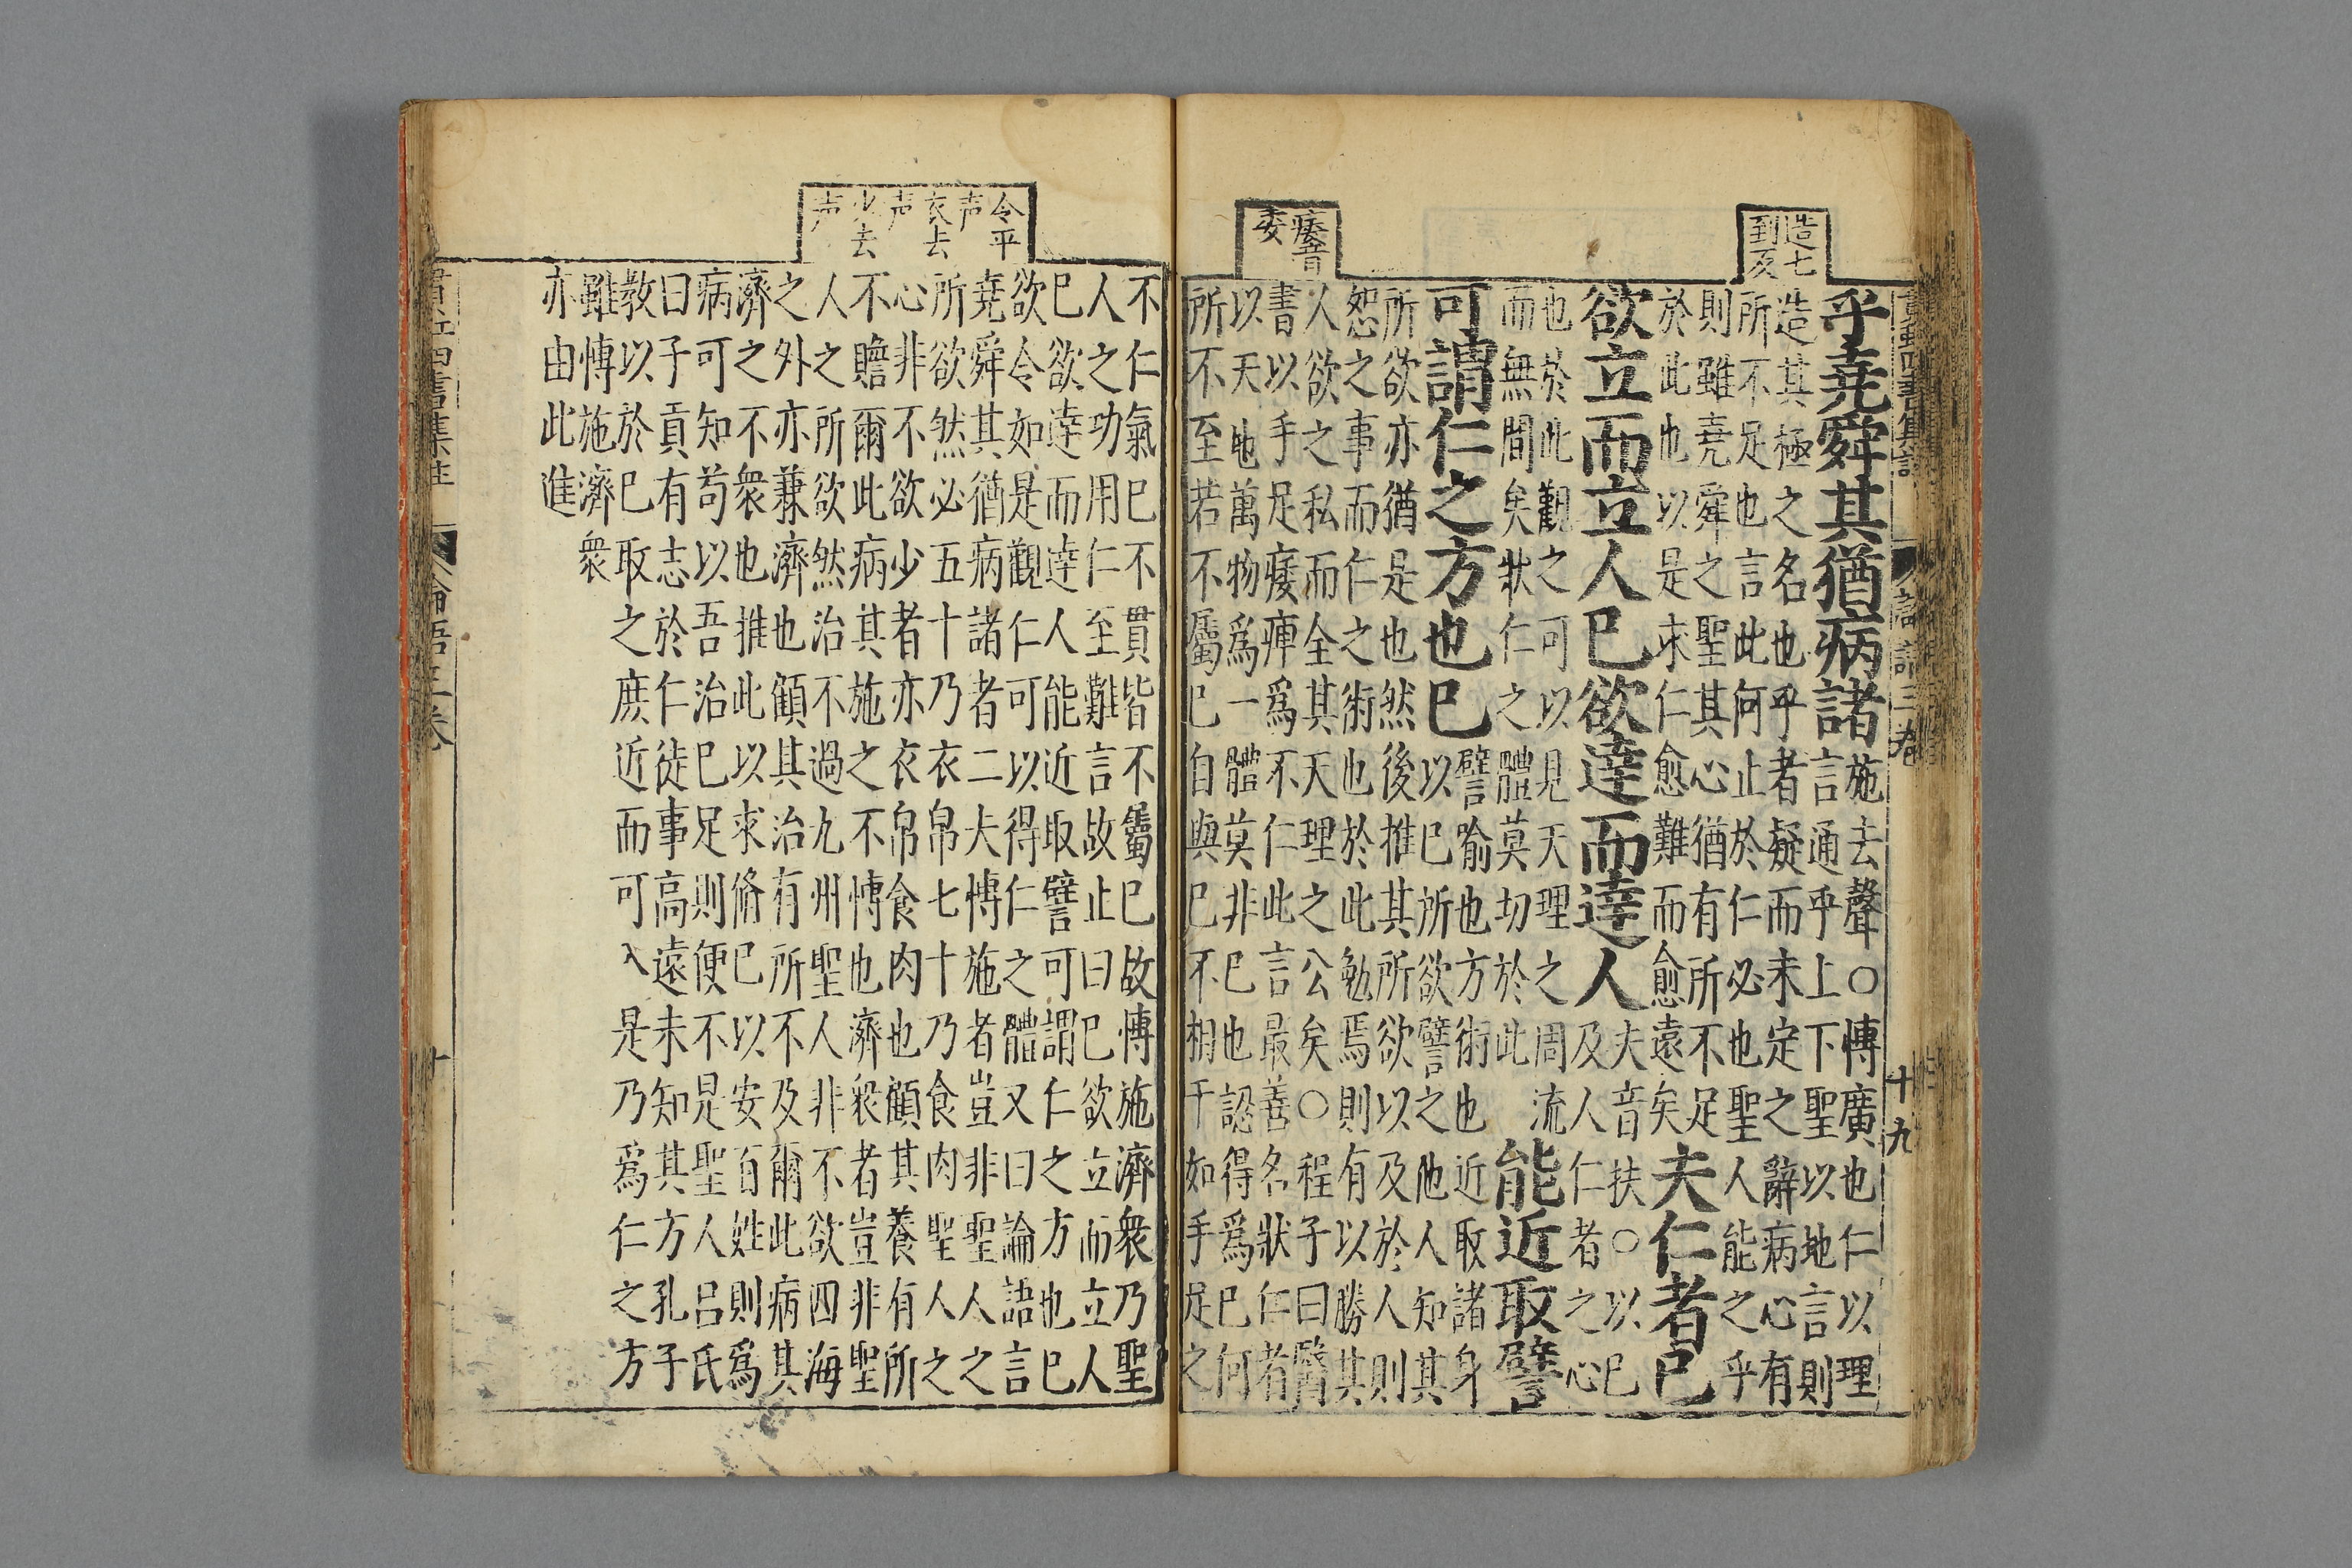 造七
到及
痿音
委
論語三卷 十九
乎堯舜其猶病諸
施去聲○博廣也仁以理
言通乎上下聖以地言則
造其極之名也乎者疑而未定之辭病心有
所不足也言此何止於仁必也聖人能之乎
則雖堯舜之聖其心猶有所不足
於此也以是求仁愈難而愈遠矣
夫仁者己
欲立而立人已欲達而達人
夫音扶○以已
及人仁者之心
也於此觀之可以見天理之周流
而無間矣狀仁之體莫切於此
能近取譬
可謂仁之方也已
譬喻也方術也近取諸身
以已所欲譬之他人知其
所欲亦猶是也然後推其所欲以及於人則
恕之事而仁之術也於此勉焉則有以勝其
人欲之私而全其天理之公矣○程子曰醫
書以手足痿痺爲不仁此言最善名狀仁者
以天地萬物爲一體莫非已也認得爲已何
所不至若不屬已自與已不相干如手足之
令平
声
衣去
声
少去
声
不仁氣已不貫皆不屬已故博施濟衆乃聖
人之功用仁至難言故止曰已欲立而立人
已欲達而達人能近取譬可謂仁之方也已
欲令如是觀仁可以得仁之體又曰論語言
堯舜其猶病諸者二夫博施者豈非聖人之
所欲然必五十乃衣帛七十乃食肉聖人之
心非不欲少者亦衣帛食肉也顧其養有所
不贍爾此病其施之不博也濟衆者豈非聖
人之所欲然治不過九州聖人非不欲四海
之外亦兼濟也顧其治有所不及爾此病其
濟之不衆也推此以求脩已以安百姓則爲
病可知苟以吾治已足則便不是聖人呂氏
曰子貢有志於仁徒事高遠未知其方孔子
教以於已取之庶近而可入是乃爲仁之方
雖博施濟衆
亦由此進
論語三卷